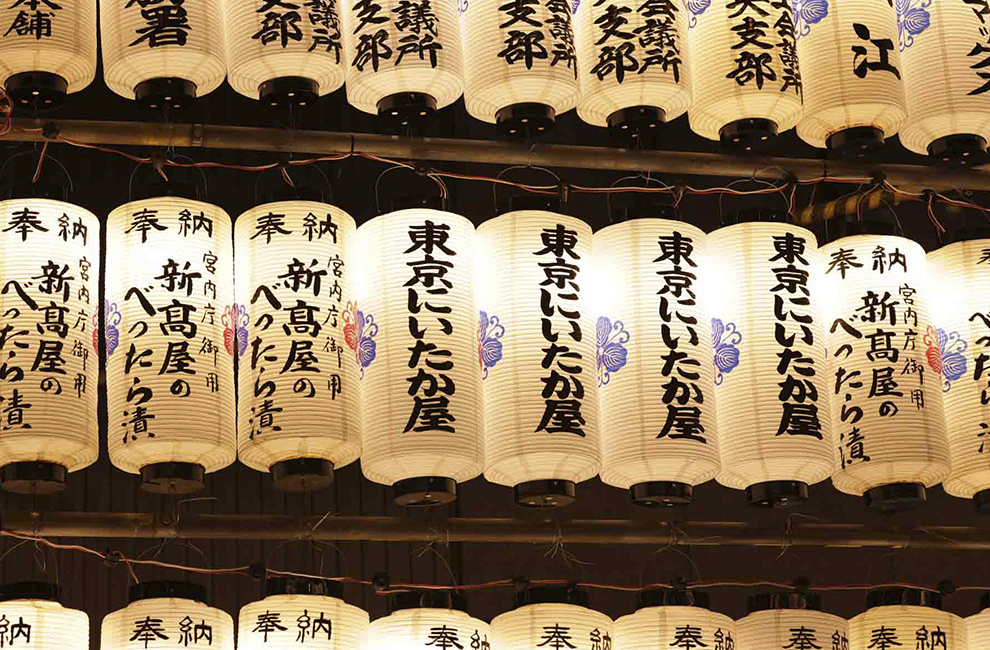 本舗
署
支部
会議所
支部
会議所
支部
会議所
支部
会議所
支部
会議所
支部
江
奉納
宮内庁御用
新髙屋の
べったら漬
奉納
宮内庁御用
新髙屋の
べったら漬
奉納
宮内庁御用
新髙屋の
べったら漬
東京にいたか屋
東京にいたか屋
東京にいたか屋
東京にいたか屋
奉納
宮内庁御用
新髙屋の
べったら漬
納
奉納
奉納
奉納
奉納
奉納
奉納
奉納